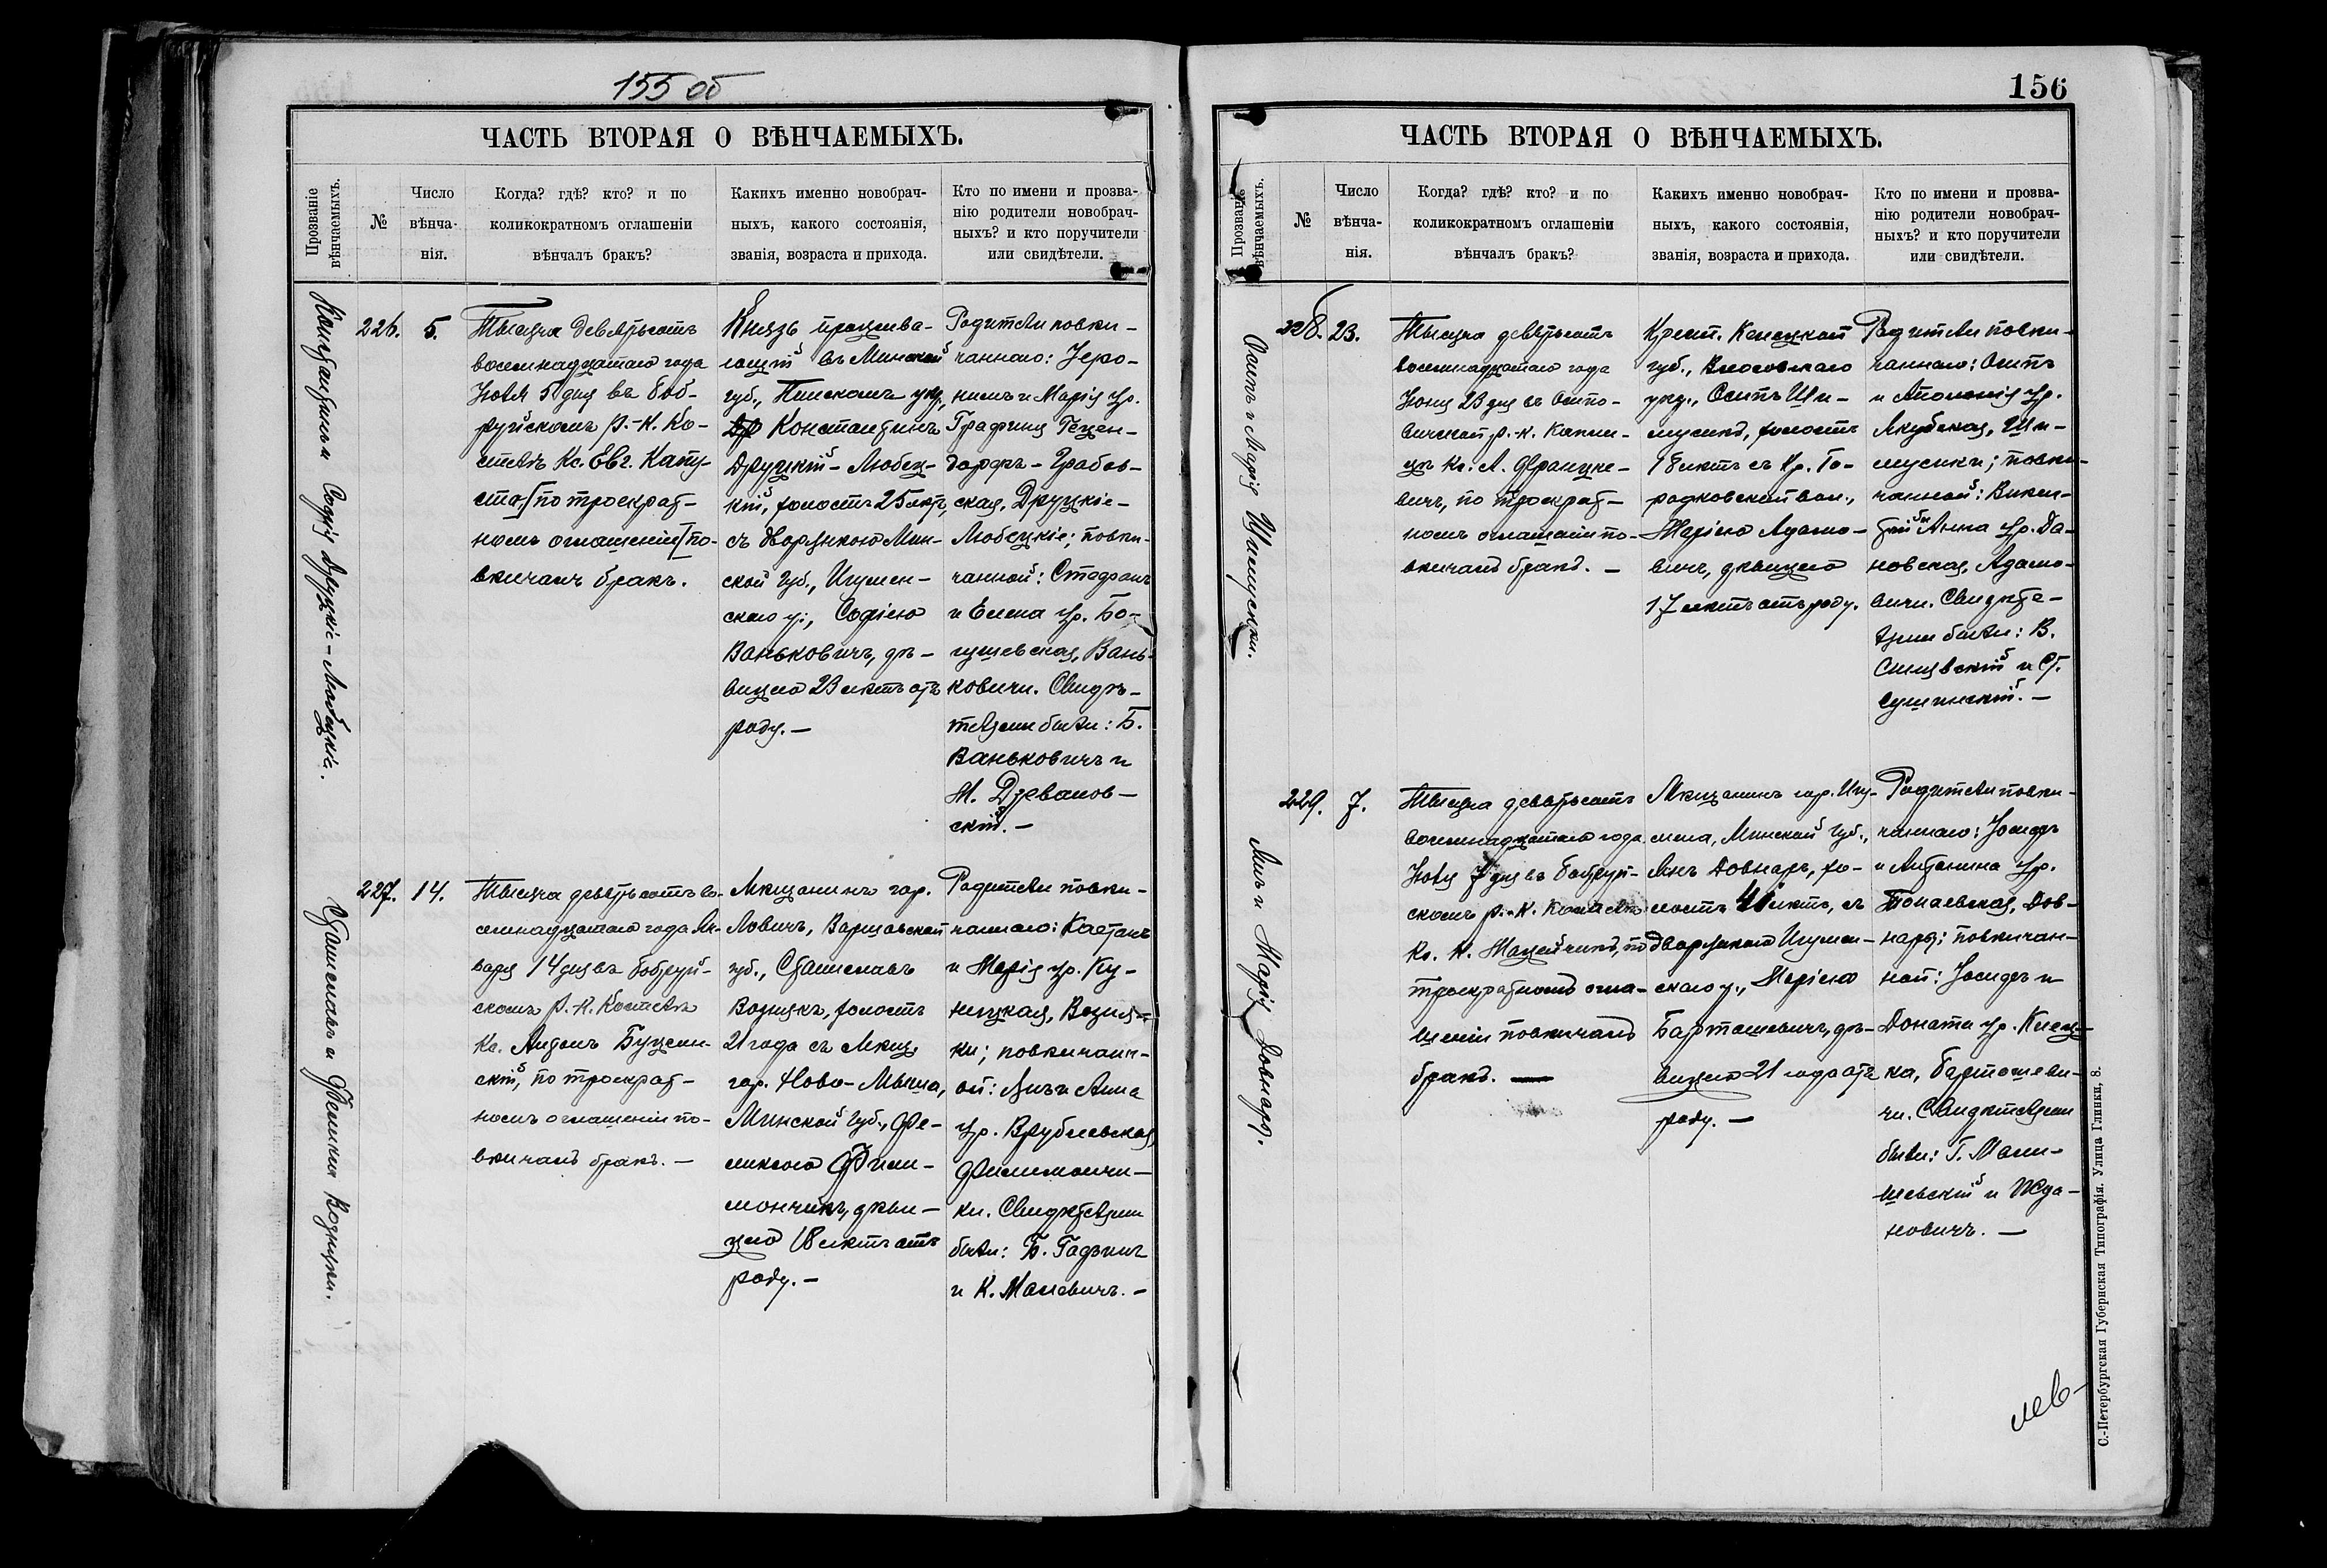 155 об
ЧАСТЬ ВТОРАЯ О ВѢНЧАЕМЫХЪ.
Прозваніе
вѣнчаемыхъ.
№
Число
вѣнча-
нія.
Когда? гдѣ? кто? и по
коликократномъ оглашеніи
вѣнчалъ бракъ?
Каких​ъ именно новобрач-
ныхъ, какого состоянія,
званія, возраста и прихода.
Кто по имени и прозва-
нію родители новобрач-
ныхъ? и кто поручители
или свидѣтели.
Константинъ и Софія Друцкіе-Любецкіе.
226.
5.
Тысяча девятьсотъ
восемнадцатаго года
Іюля 5 дня въ Боб-
руйскомъ Р.-К. Ко-
стелѣ Кс. Евг. Капу-
ста, по троекрат-
номъ оглашеніи по-
вѣнчалъ бракъ.
Князь прожива-
ющій въ Минской
губ., Пинскомъ уѣз.,
Константинъ
Друцкій-Любец-
кій, холостъ 25 лѣтъ,
съ дворянкою Мин-
ской губ., Игумен-
скаго у., Софіею
Ваньковичъ, дѣ-
вицею 23 лѣтъ отъ
роду. —
Родители повѣн-
чаннаго: Іеро-
нимъ и Марія ур.
Графиня Гецен-
дорфъ-Грабов-
ская, Друцкіе-
Любецкіе; повѣн-
чанной: Стефанъ
и Елена ур. Бо-
гушевская, Вань-
ковичи. Свидѣ-
телями были: Б.
Ваньковичъ и
М. Древанов-
скій. —
Станиславъ и Феликса Возняки.
227.
14.
Тысяча девятьсотъ во-
семнадцатаго года Ян-
варя 14 дня въ Бобруй-
скомъ Р.-К. Костелѣ
Кс. Антонъ Буцен-
скій, по троекрат-
номъ оглашеніи по-
вѣнчалъ бракъ. —
Мѣщанинъ гор.
Ловичъ, Варшавской
губ., Станиславъ
Вознякъ, холостъ
21 года съ Мѣщ.
гор. Ново-Мыша,
Минской губ., Фе-
ликсою Фили-
мончикъ, дѣви-
цею 18 лѣтъ отъ
роду. —
Родители повѣн-
чаннаго: Каетанъ
и Марія ур. Ку-
ницкая, Возня-
ки; повѣнчанн-
ой: Янъ и Анна
ур. Врублевская,
Филимончи-
ки. Свидѣтелями
были: Б. Гадзинъ
и К. Маневичъ. —
156
ЧАСТЬ ВТОРАЯ О ВѢНЧАЕМЫХЪ.
Прозваніе
вѣнчаемыхъ.
№
Число
вѣнча-
нія.
Когда? гдѣ? кто? и по
коликократномъ оглашеніи
вѣнчалъ бракъ?
Какихъ именно новобрач-
ныхъ, какого состоянія,
званія, возраста и прихода.
Кто по имени и прозва-
нію родители новобрач-
ныхъ? и кто поручители
или свидѣтели.
Осипъ и Марія Шимусики.
228.
23.
Тысяча девятьсотъ
восемнадцатаго года
Іюня 23 дня въ Осипо-
вичской р.-к. Капли-
цѣ Кс. А. Францке-
вичъ, по троекрат-
номъ оглашеніи по-
вѣнчалъ бракъ. —
Крест. Келецкой
губ., Влосовскаго
уѣзд., Осипъ Ши-
мусикъ, холостъ
18 лѣтъ съ кр. Го-
родковской вол.,
Маріею Адамо-
вичъ, дѣвицею
17 лѣтъ отъ роду.
Родители повѣн-
чаннаго: Осипъ
и Апполонія ур.
Якубская, Ши-
мусики; повѣн-
чанной: Викен-
тій и Анна ур. Да-
новская, Адамо-
вичи. Свидѣте-
лями были: В.
Синявскій и Ст.
Сушинскій. —
Янъ и Марія Довнаръ.
229.
7.
Тысяча девятьсотъ
восемнадцатаго года
Іюля 7 дня въ Бобруй-
скомъ р.-К. Костелѣ
Кс. К. Мацейчикъ, по
троекратномъ огла-
шеніи повѣнчалъ
бракъ. —
Мѣщанинъ гор. Игу-
мена, Минской губ.,
Янъ Довнаръ, хо-
лостъ 41 лѣтъ, съ
дворянкою Игумен-
скаго у., Маріею
Барташевичъ, дѣ-
вицею 21 года отъ
роду. —
Родители повѣн-
чаннаго: Іосифъ
и Антонина ур.
Понаевская, Дов-
нары; повѣнчан-
ной: Іосифъ и
Доната ур. Княз-
ка, Бартошеви-
чи. Свидѣтелями
были: Г. Мали-
шевскій и Жда-
новичъ. —
С.-Петербургская Губернская Типографія. Улица Глинки, 8.